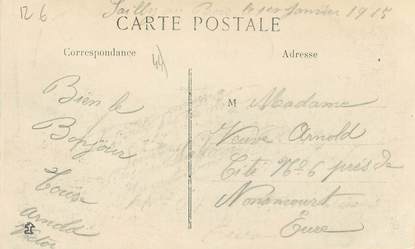 12 6
Sailly au Bois le 1er Janvier 1915
CARTE POSTALE
Correspondance
Adresse
Bien le
Bonjour
Louis
Arnold
M Madame
Veuve Arnold
Cité No 6 près de
Nonancourt
Eure